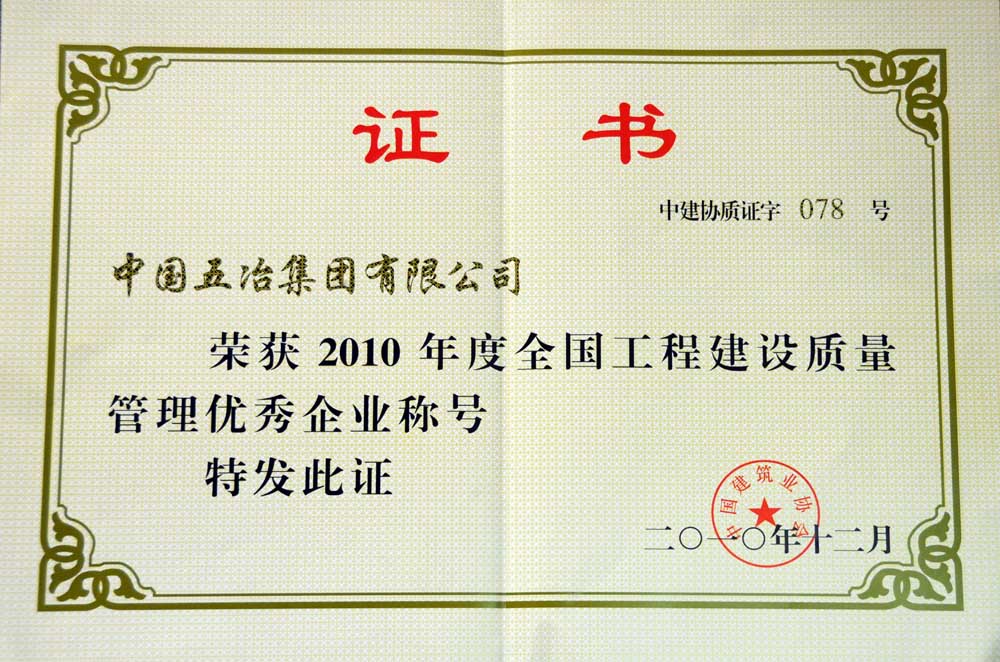 证书
中建协质证字 078 号
中国五冶集团有限公司
荣获 2010 年度全国工程建设质量
管理优秀企业称号
特发此证
中国建筑业协会
二〇一〇年十二月